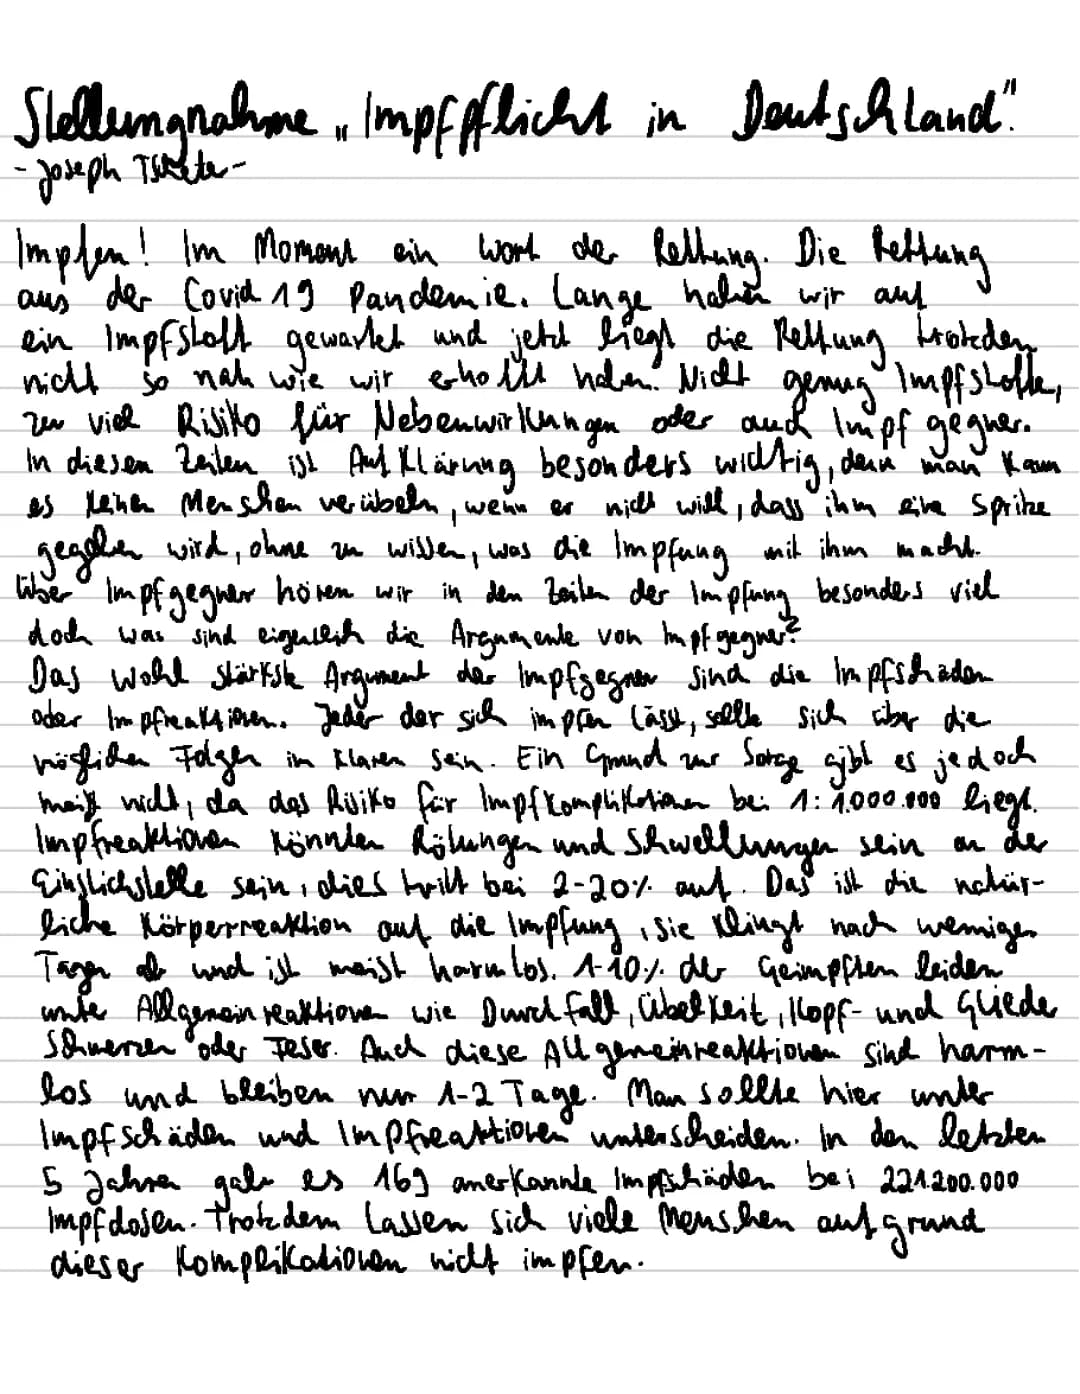 Stellungnahme „Impfpflicht in Deutschland"
- Joseph
Impfen! Im Moment ein Wort der Rettung. Die Rettung
aus der Covid 19 Pandemie. Lange haben wir auf
ein Impfstoff gewartet und jetzt liegt die Rettung trotzdem
nicht so nah wie wir erhofft haben. Nicht genug Impfstoffe,
zu viel Risiko für Nebenwirkungen oder auch Impfgegner.
In diesen Zeiten ist Aufklärung besonders wichtig, denn man kann
es keinen Menschen verübeln, wenn er nicht will, dass ihm eine Spritze
gegeben wird, ohne zu wissen, was die Impfung mit ihm macht.
Über Impfgegner hören wir in den Zeiten der Impfung besonders viel
doch was sind eigentlich die Argumente von Impfgegner?
Das wohl stärkste Argument der Impfgegner sind die Impfschäden
oder Impfreaktionen. Jeder der sich impfen lässt, sollte sich über die
möglichen Folgen im klaren sein. Ein Grund zur Sorge gibt es jedoch
meist nicht, da das Risiko für Impfkomplikationen bei 1:1.000.000 liegt.
Impfreaktionen könnten Rötungen und Schwellungen sein an der
Einstichstelle sein, dies tritt bei 2-20% auf. Das ist die natür-
liche Körperreaktion auf die Impfung, sie klingt nach wenigen
Tagen ab und ist meist harmlos. 1-10% der Geimpften leiden
unter Allgemeinreaktionen wie Durchfall, Übelkeit, Kopf- und Gliede
Schmerzen oder Fieber. Auch diese Allgemeinreaktionen sind harm-
los und bleiben nur 1-2 Tage. Man sollte hier unter
Impfschäden und Impfreaktionen unterscheiden. In den letzten
5 Jahren gab es 169 anerkannte Impfschäden bei 221.200.000
Impfdosen. Trotzdem lassen sich viele Menschen auf grund
dieser Komplikationen nicht impfen.